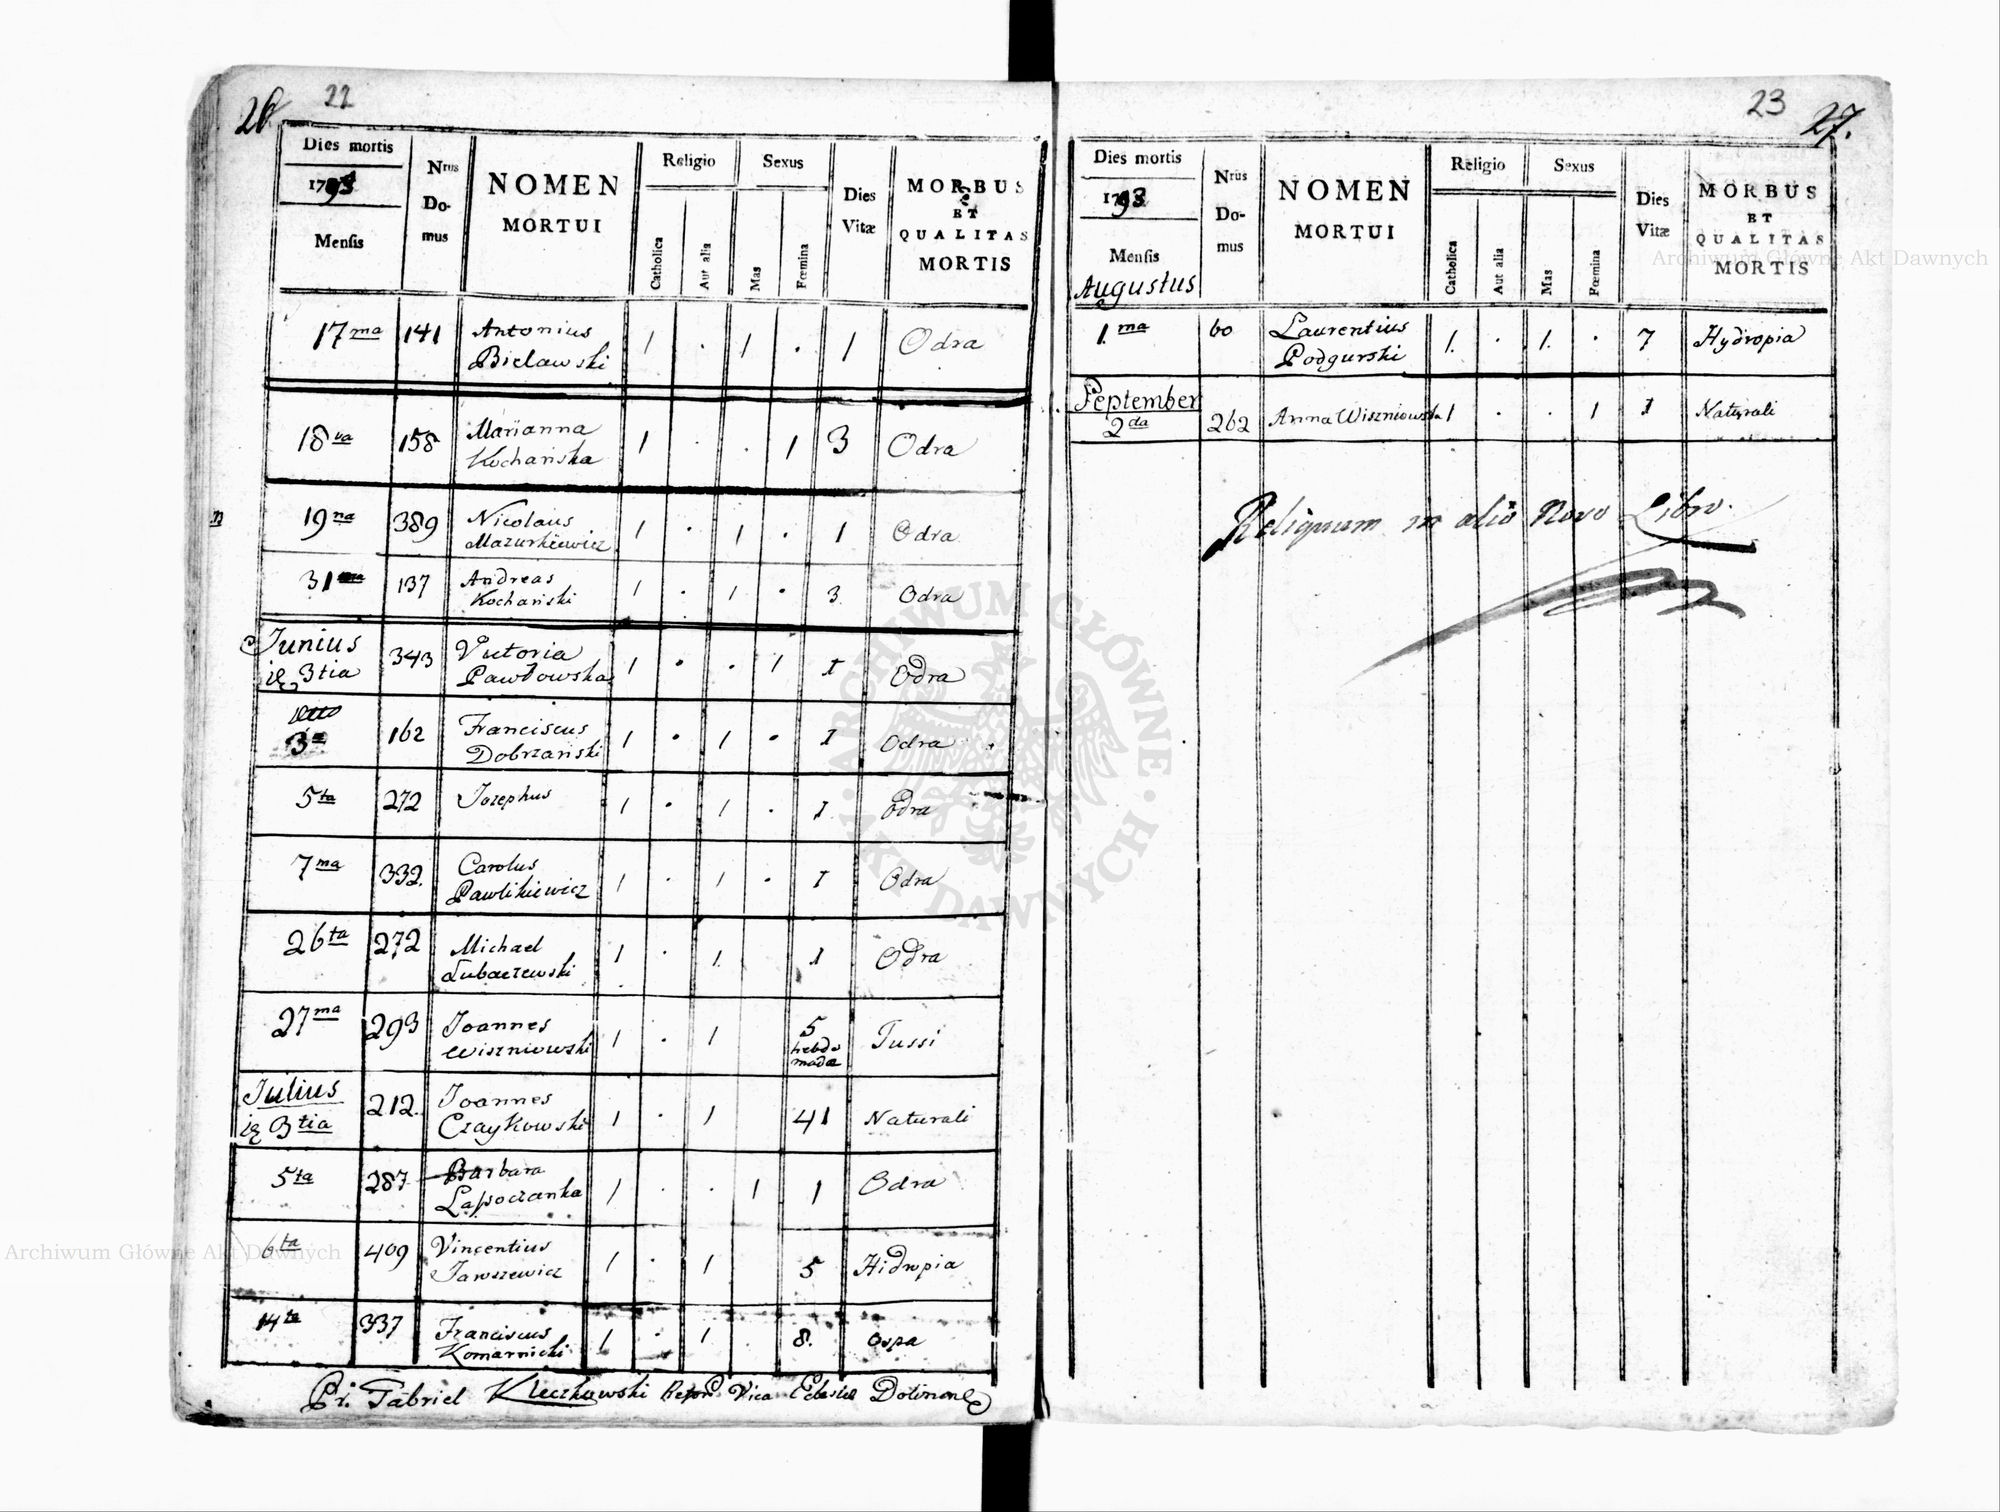 26 22
Dies mortis
1793
Mensis
Nrus
Do-
mus
NOMEN
MORTUI
Religio
Catholica
Aut alia
Sexus
Mas
Fœmina
Dies
Vitæ
MORBUS
ET
QUALITAS
MORTIS
17ma 141 Antonius
Bielawski 1 . 1 . 1 Odra
18va 158 Marianna
Kochańska 1 . . 1 3 Odra
19na 389 Nicolaus
Mazurkiewicz 1 . 1 . 1 Odra
31ma 137 Andreas
Kochański 1 . 1 . 3 Odra
Junius
3tia 343 Victoria
Pawłowska 1 . . 1 1 Odra
3a 162 Franciscus
Dobrzański 1 . 1 . 1 Odra
5ta 272 Josephus 1 . 1 . 1 Odra
7ma 332. Carolus
Pawlikiewicz 1 . 1 . 1 Odra
26ta 272 Michael
Lubaczewski 1 . 1. 1 Odra
27ma 293 Joannes
Wiszniowski 1 . 1 5
hebdo
madæ Tussi
Julius
3tia 212. Joannes
Czaykowski 1 . 1 41 Naturali
5ta 287 Barbara
Lapoczanka 1 . . 1 1 Odra
6ta 409 Vincentius
Jaroszewicz 1 . 1 5 Hidropia
14ta 337 Franciscus
Komarnicki 1 . 1 8. Ospa
Pr. Gabriel Kleczkowski
23 27.
Dies mortis
1793
Mensis
Augustus
Nrus
Do-
mus
NOMEN
MORTUI
Religio
Catholica
Aut alia
Sexus
Mas
Fœmina
Dies
Vitæ
MORBUS
ET
QUALITAS
MORTIS
1.ma 60 Laurentius
Podgurski 1. . 1. . 7 Hydropia
September
2da 262 Anna Wiszniowska 1 . . 1 1 Naturali
Reliquum in alio Novo Libro.
ARCHIWUM GŁÓWNE
AKT DAWNYCH
Archiwum Główne Akt Dawnych
Archiwum Główne Akt Dawnych